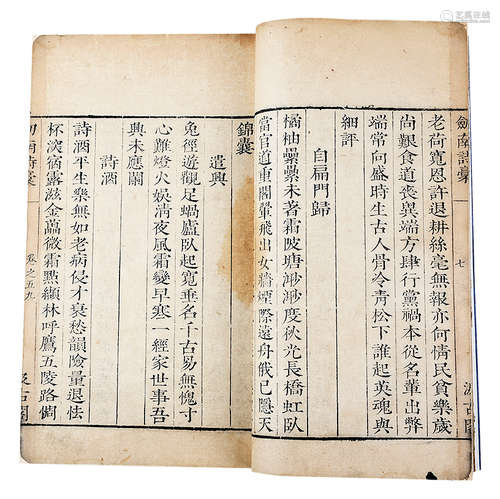 老荷寛恩許退耕絲毫無報亦何情民貧樂歲
尚艱食道喪異端方肆行黨禍本從名輩出弊
端常向盛時生古人骨冷青松下誰起英魂與
細評
自扁門歸
橘柚纍纍未著霜陂塘渺渺度秋光長橋虹臥
當官道重閣翬飛出女牆煙際遠舟俄已隱天
劍南詩稾
七
汲古閣
錦囊
遣興
兔徑遊觀足蝸廬臥起寬垂名千古易無愧寸
心難燈火娛清夜風霜變早寒一經家世事吾
興未應闌
詩酒
詩酒平生樂無如老病侵才衰愁韻險量退怯
杯深宿露滋金菊微霜點纈林呼鷹五陵路惆
劍南詩稾
卷之五九
汲古閣